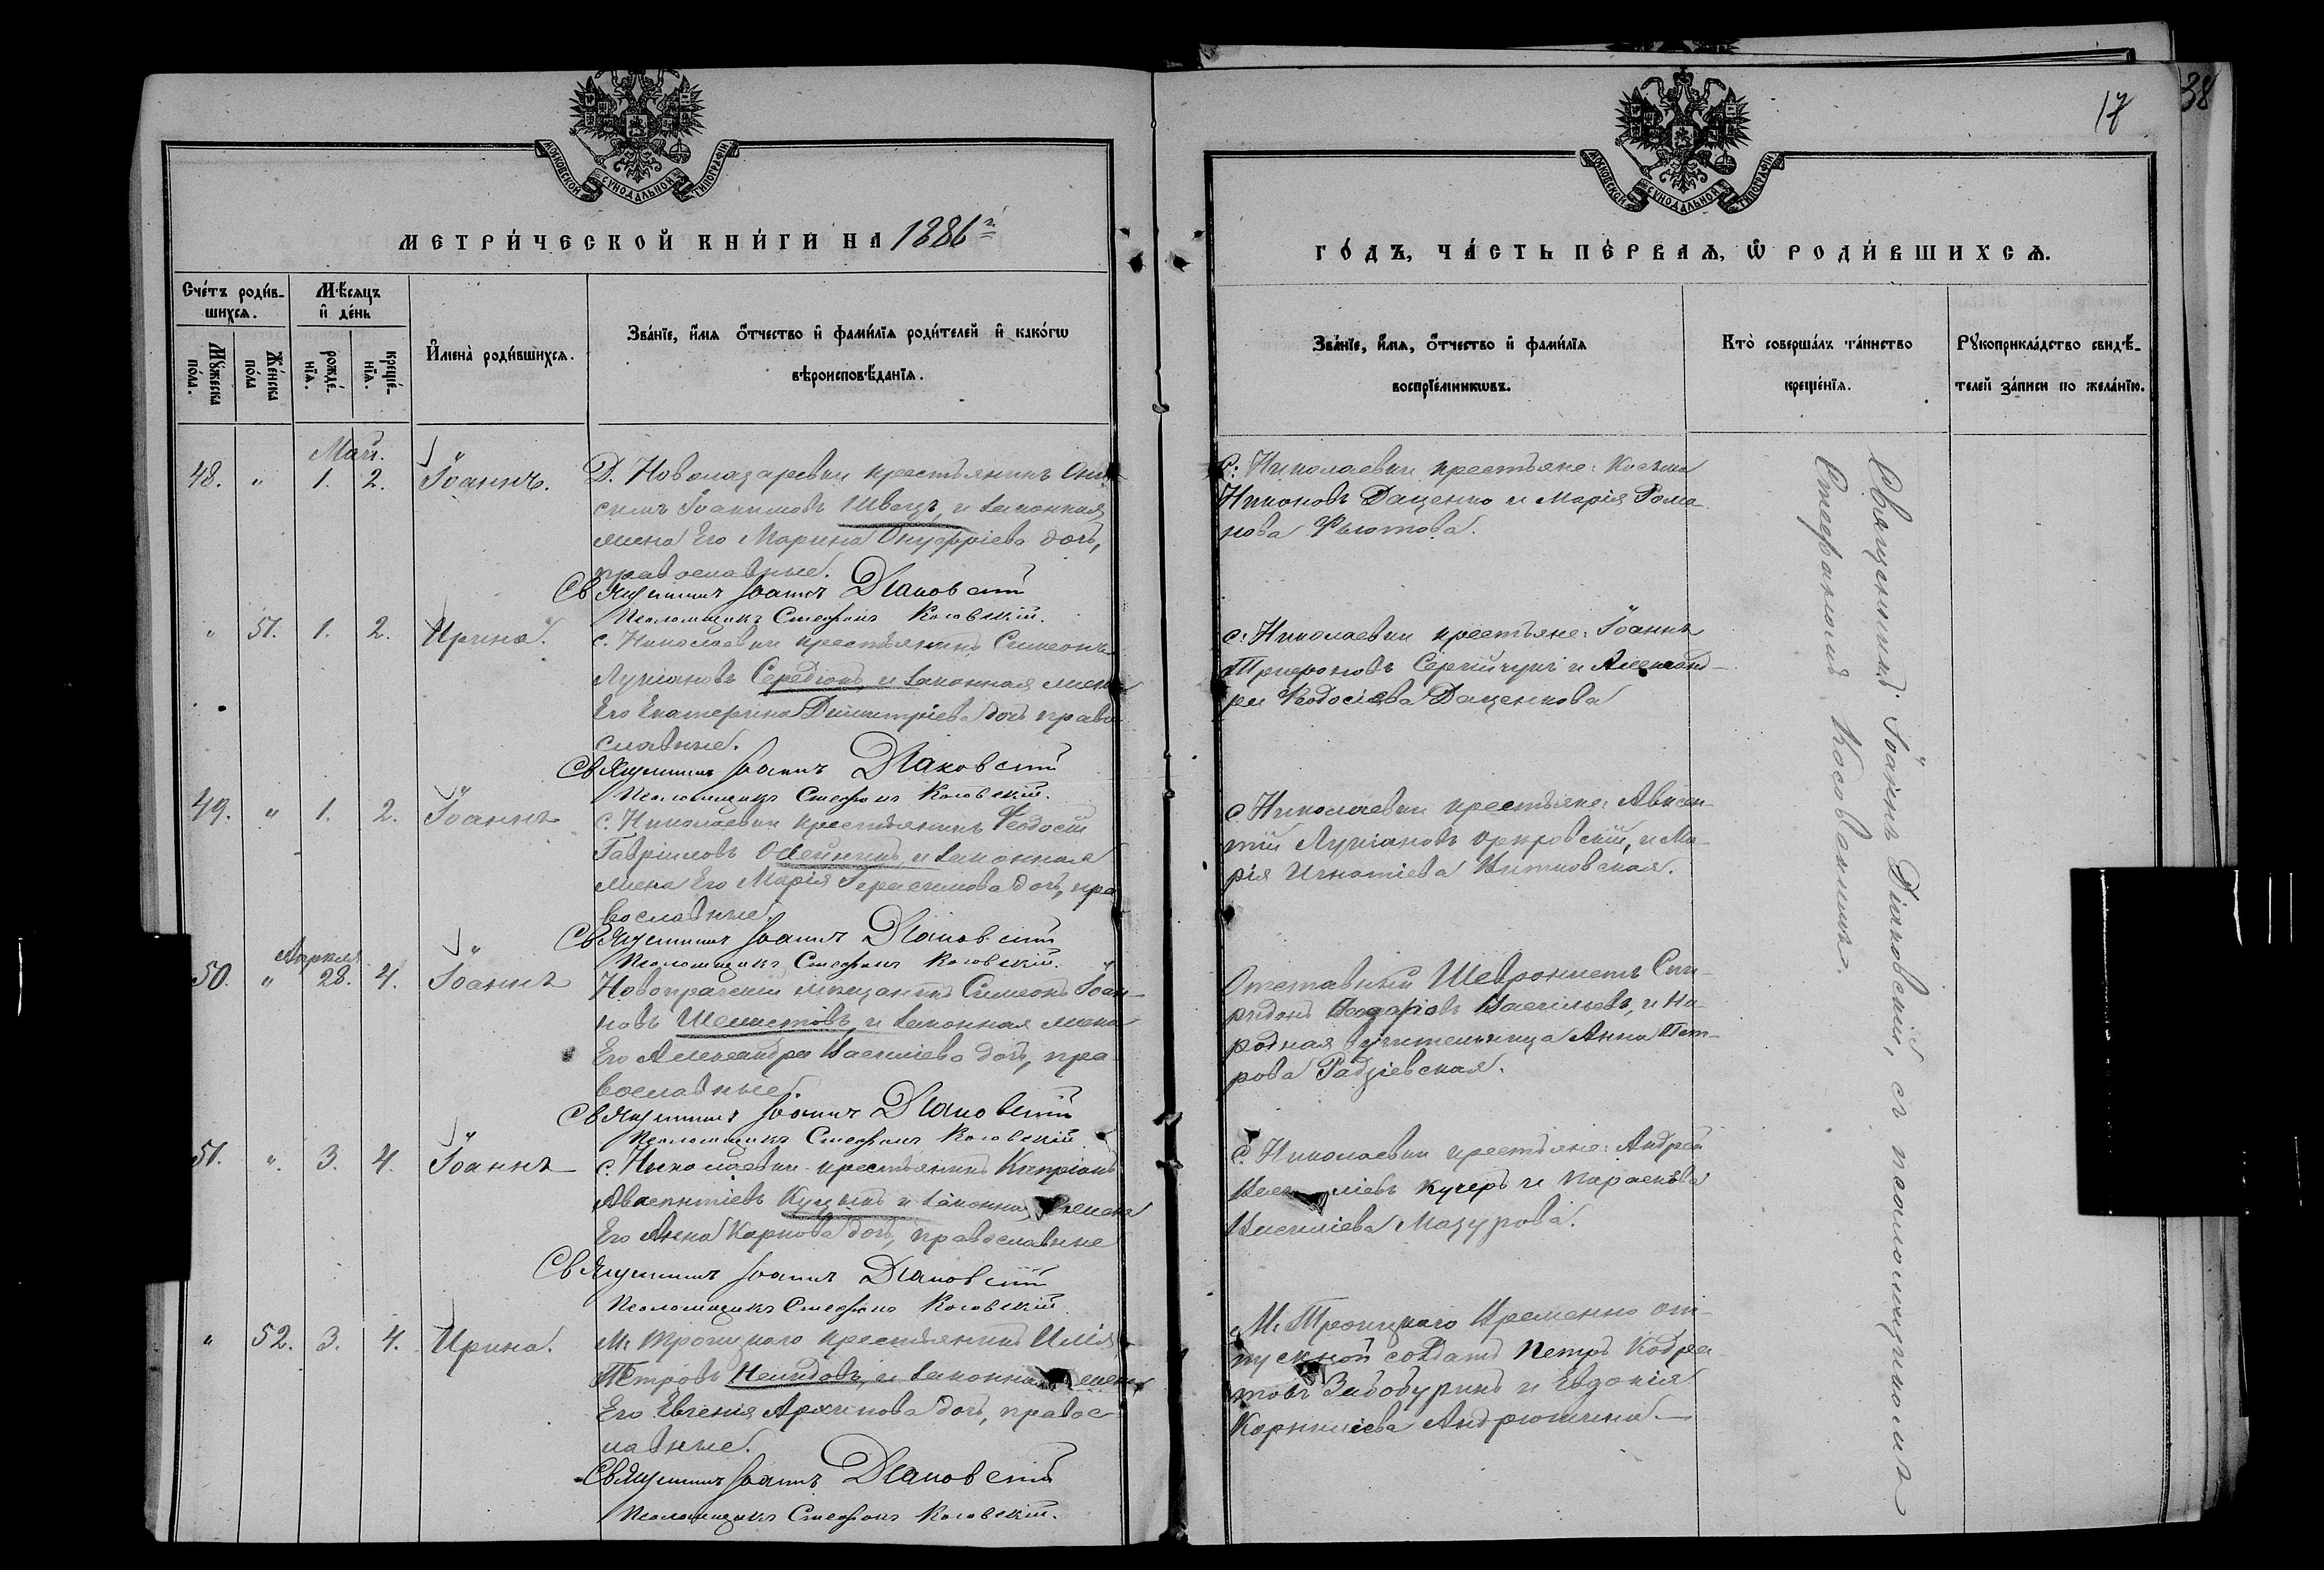 17
38
МОСКОВСКОЙ СУНОДАЛЬНОЙ ТИПОГРАФІИ
МОСКОВСКОЙ СУНОДАЛЬНОЙ ТИПОГРАФІИ
МЕТРИ́ЧЕСКОЙ КНИ́ГИ НА 1886 г.
ГО́ДЪ, ЧА́СТЬ ПЕ́РВАѦ, Ѡ҆ РОДИ́ВШИХСѦ.
Сче́тъ роди́в-
шихся.
Мꙋ́жеска по́ла.
Же́нска по́ла
Мѣ́сяцъ и҆ де́нь
рожде́-
нїя.
креще́-
нїя.
И҆мена̀ роди́вшихся.
Зва́нїе, и҆́мя ѻ҆́тчество и҆ фами́лїя роди́телей и҆ како́гѡ
вѣроисповѣ́данїя.
Зва́нїе, и҆́мя, ѻ҆́тчество и҆ фами́лїя
воспрїе́мникѡвъ.
Кто̀ соверша́лъ та́инство
креще́нїя.
Рꙋкоприкла́дство свидѣ́-
телей за́писи по жела́нїю.
Май.
48. " 1. 2. Іоаннъ.
Д. Новолазаревки крестьянинъ Они-
симъ Іоакимовъ Швецъ, и законная
жена Его Марина Онуфріева дочь,
православные.
Священникъ Іоаннъ Діаковскій
Псаломщикъ Стефанъ Косовскій.
С: Николаевки крестьяне: Косьма
Никоновъ Даценко и Марія Рома-
нова
" 51. 1. 2. Ирина.
с. Николаевки крестьянинъ Симеонъ
Лукіановъ и законная жена
Его Екатерина Димитріева дочь право-
славные.
Священникъ Іоаннъ Діаковскій
Псаломщикъ Стефанъ Косовскій.
с: Николаевки крестьяне: Іоаннъ
Трифоновъ и Александ-
ра Феодосіева Даценкова
49. " 1. 2. Іоаннъ
с. Николаевки крестьянинъ Феодосій
Гавріиловъ Олейникъ, и законная
жена Его Марія Герасимова дочь, пра-
вославные.
Священникъ Іоаннъ Діаковскій
Псаломщикъ Стефанъ Косовскій.
с Николаевки крестьяне: Авксен-
тій Лукіановъ и Ма-
рія Игнатіева Витковская.
Апреля
50. " 28. 4. Іоаннъ
Новопражскій мещанинъ Симеонъ Іоан-
новъ и законная жена
Его Александра Василіева дочь, пра-
вославные.
Священникъ Іоаннъ Діаковскій
Псаломщикъ Стефанъ Косовскій
Отставный Шевронистъ Спи-
ридонъ Васильевъ, и На-
родная учительница Анна Пет-
рова Радзіевская.
51. ". 3. 4. Іоаннъ
с. Николаевки крестьянинъ Кипріанъ
Авксентіевъ и законная жена
Его Анна Карпова дочь, православные
Священникъ Іоаннъ Діаковскій
Псаломщикъ Стефанъ Косовскій.
С. Николаевки крестьяне: Андрей
Кучеръ и Параскева
Василіева Мазурова.
" 52. 3. 4. Ирина.
М. Троицкаго крестьянинъ Илія
Петровъ и законная жена
Его Евгенія Архипова дочь, правос-
лавные.
Священникъ Іоаннъ Діаковскій
Псаломщикъ Стефанъ Косовскій.
М. Троицкаго Временно от-
пускной солдатъ Петръ Кодра-
товъ и Евдокія
Корниліева Андрюшина.
Священникъ Іоаннъ Діаковскій, съ псаломщикомъ
Стефаномъ Косовскимъ.